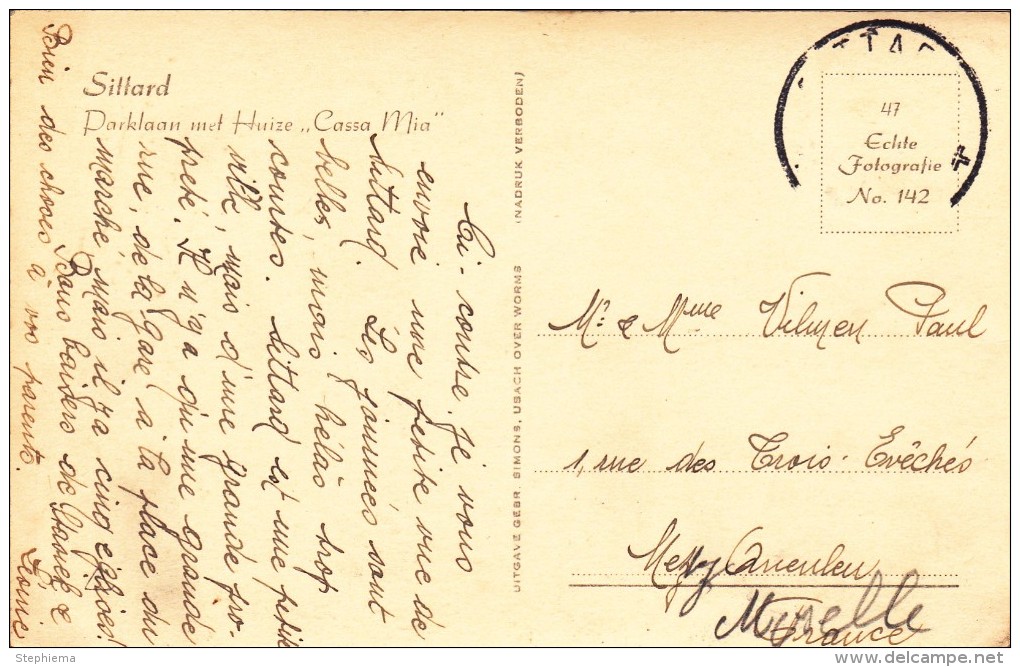 Sittard
Parklaan met Huize „Cassa Mia"
Ci-contre, je vous
envoie une petite vue de
Sittard. Les journées sont
belles, mais hélas trop
courtes. Sittard est une petite
ville, mais d'une grande pro-
preté. Il n'y a qu'une grande
rue, de la gare à la place du
marché, mais il y a cinq églises!
Bons baisers de
Léonie
Bien des choses à vos parents.
UITGAVE GEBR. SIMONS, USACH OVER WORMS (NADRUK VERBODEN)
47
Echte
Fotografie
No. 142
Mr & Mme Vilmen Paul
1, rue des Trois-Evêchés
Metz
Moselle
France
Stephiema